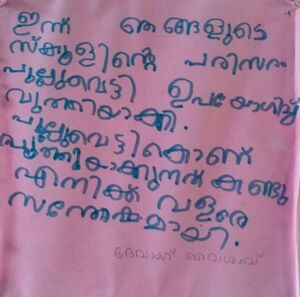 ഇന്ന് ഞങ്ങളുടെ
സ്കൂളിന്റെ പരിസരം
പുല്ലുവെട്ടി ഉപയോഗിച്ച്
വൃത്തിയാക്കി.
പുല്ലുവെട്ടികൊണ്ട്
വൃത്തിയാക്കുന്നത് കണ്ടു
എനിക്ക് വളരെ
സന്തോഷമായി.
ദേവാംഗ് വൈശാഖ്